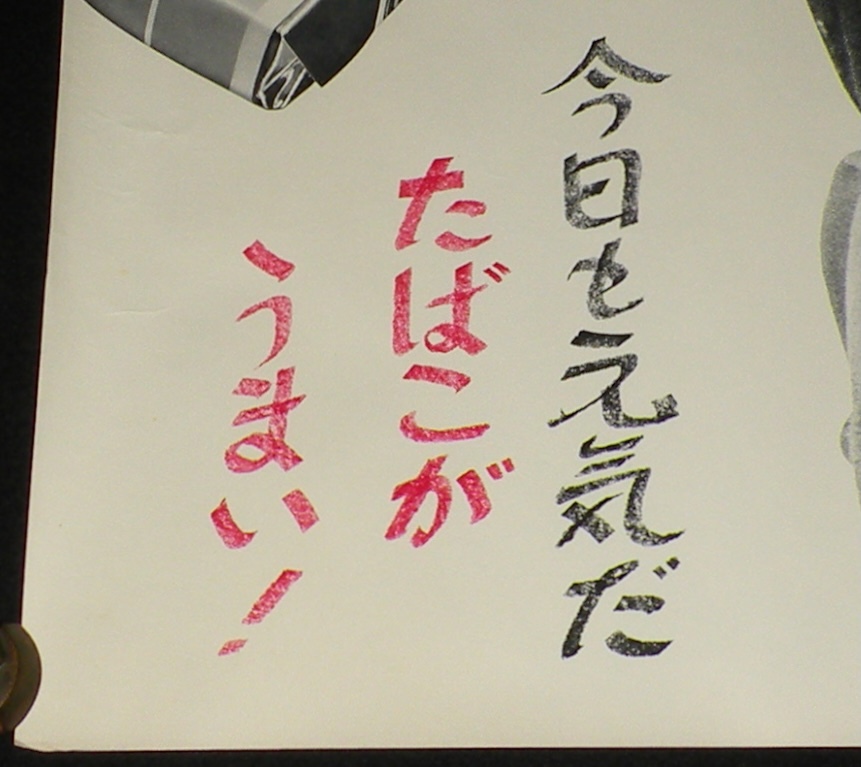 今日も元気だ
たばこが
うまい!